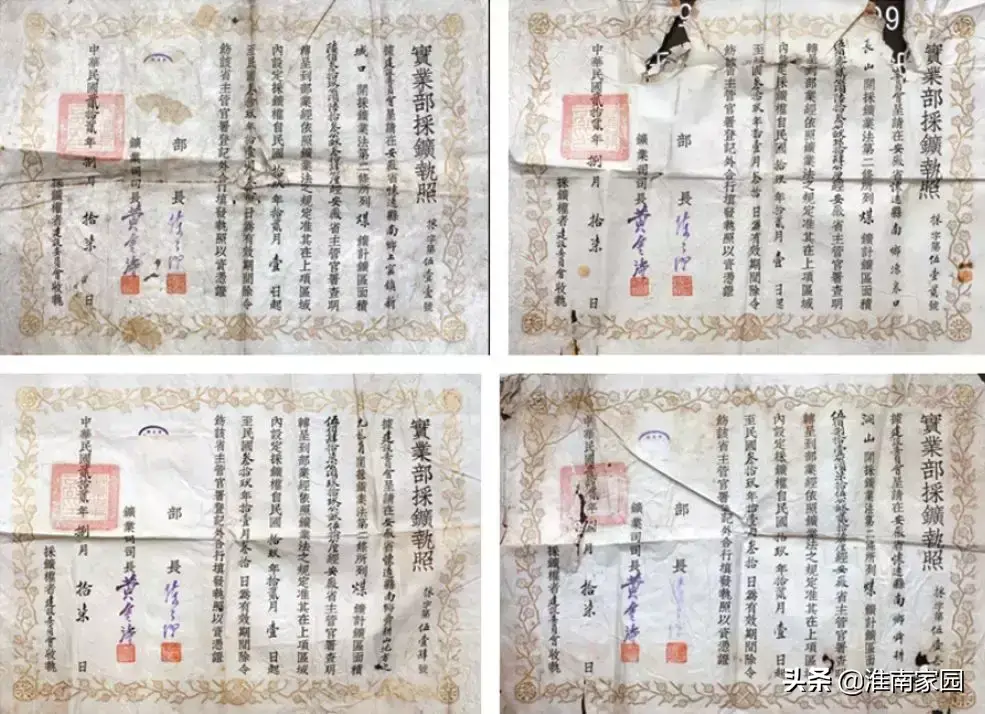 實業部採鑛執照
採字第伍壹壹號
據建設委員會呈請在安徽省懷遠縣南鄉上窰鎮新
城口開採鑛業法第二條所列煤鑛計鑛區面積
安徽省主管官署查明
轉呈到部業經依照鑛業法之規定准其在上項區域
內設定採鑛權自民國拾玖年拾貳月壹日起
至民國叁拾玖年拾壹月叁拾日爲有效期間除令
飭該省主管官署登記外合行填發執照以資憑證
部長
鑛業司司長黃金濤
中華民國貳拾貳年捌月拾柒日
採鑛權者建設委員會收執
實業部採鑛執照
採字第伍壹貳號
委員會呈請在安徽省懷遠縣南鄉
長山開採鑛業法第二條所列煤鑛計鑛區面積
安徽省主管官署查明
轉呈到部業經依照鑛業法之規定准其在上項區域
內設定採鑛權自民國拾玖年拾貳月壹日起
至民國叁拾玖年拾壹月叁拾日爲有效期間除令
飭該省主管官署登記外合行填發執照以資憑證
部長
鑛業司司長黃金濤
中華民國貳拾貳年捌月拾柒日
採鑛權者建設委員會收執
實業部採鑛執照
採字第伍壹肆號
據建設委員會呈請在安徽省懷遠縣南鄉
九龍崗開採鑛業法第二條所列煤鑛計鑛區面積
安徽省主管官署查明
轉呈到部業經依照鑛業法之規定准其在上項區域
內設定採鑛權自民國拾玖年拾貳月壹日起
至民國叁拾玖年拾壹月叁拾日爲有效期間除令
飭該省主管官署登記外合行填發執照以資憑證
部長
鑛業司司長黃金濤
中華民國貳拾貳年捌月拾柒日
採鑛權者建設委員會收執
實業部採鑛執照
採字第伍壹
據建設委員會呈請在安徽省懷遠縣南鄉
洞山開採鑛業法第二條所列煤鑛計鑛區面積
安徽省主管官署查明
轉呈到部業經依照鑛業法之規定准其在上項區域
內設定採鑛權自民國拾玖年拾貳月壹日起
至民國叁拾玖年拾壹月叁拾日爲有效期間除令
飭該省主管官署登記外合行填發執照以資憑證
部長
鑛業司司長黃金濤
中華民國貳拾貳年捌月拾柒日
採鑛權者建設委員會收執
头条 @淮南家园